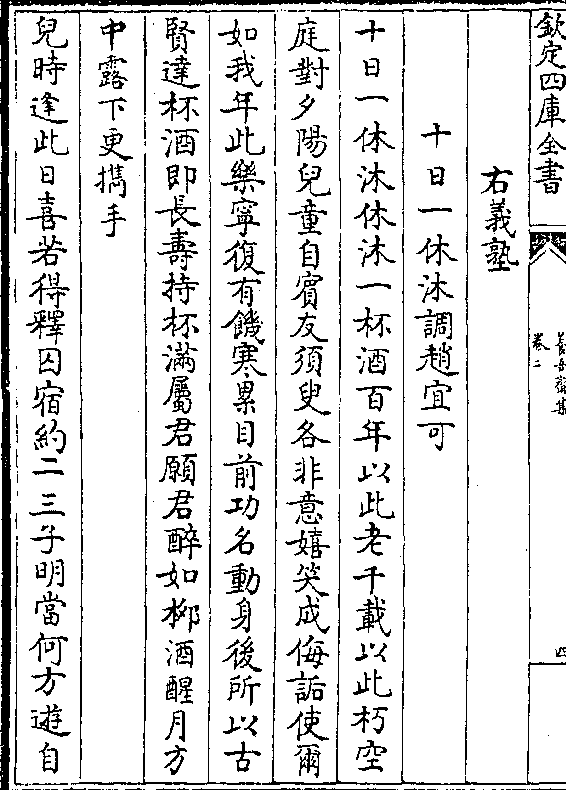 欽定四庫全書
卷二
四
右義塾
十日一休沐調趙宜可
十日一休沐休沐一杯酒百年以此老千載以此朽空
庭對夕陽兒童自賓友須臾各非意嬉笑成侮詬使爾
如我年此樂寧復有饑寒累目前功名動身後所以古
賢達杯酒即長壽持杯滿屬君願君醉如柳酒醒月方
中露下更攜手
兒時逢此日喜若得釋囚宿約二三子明當何方遊自